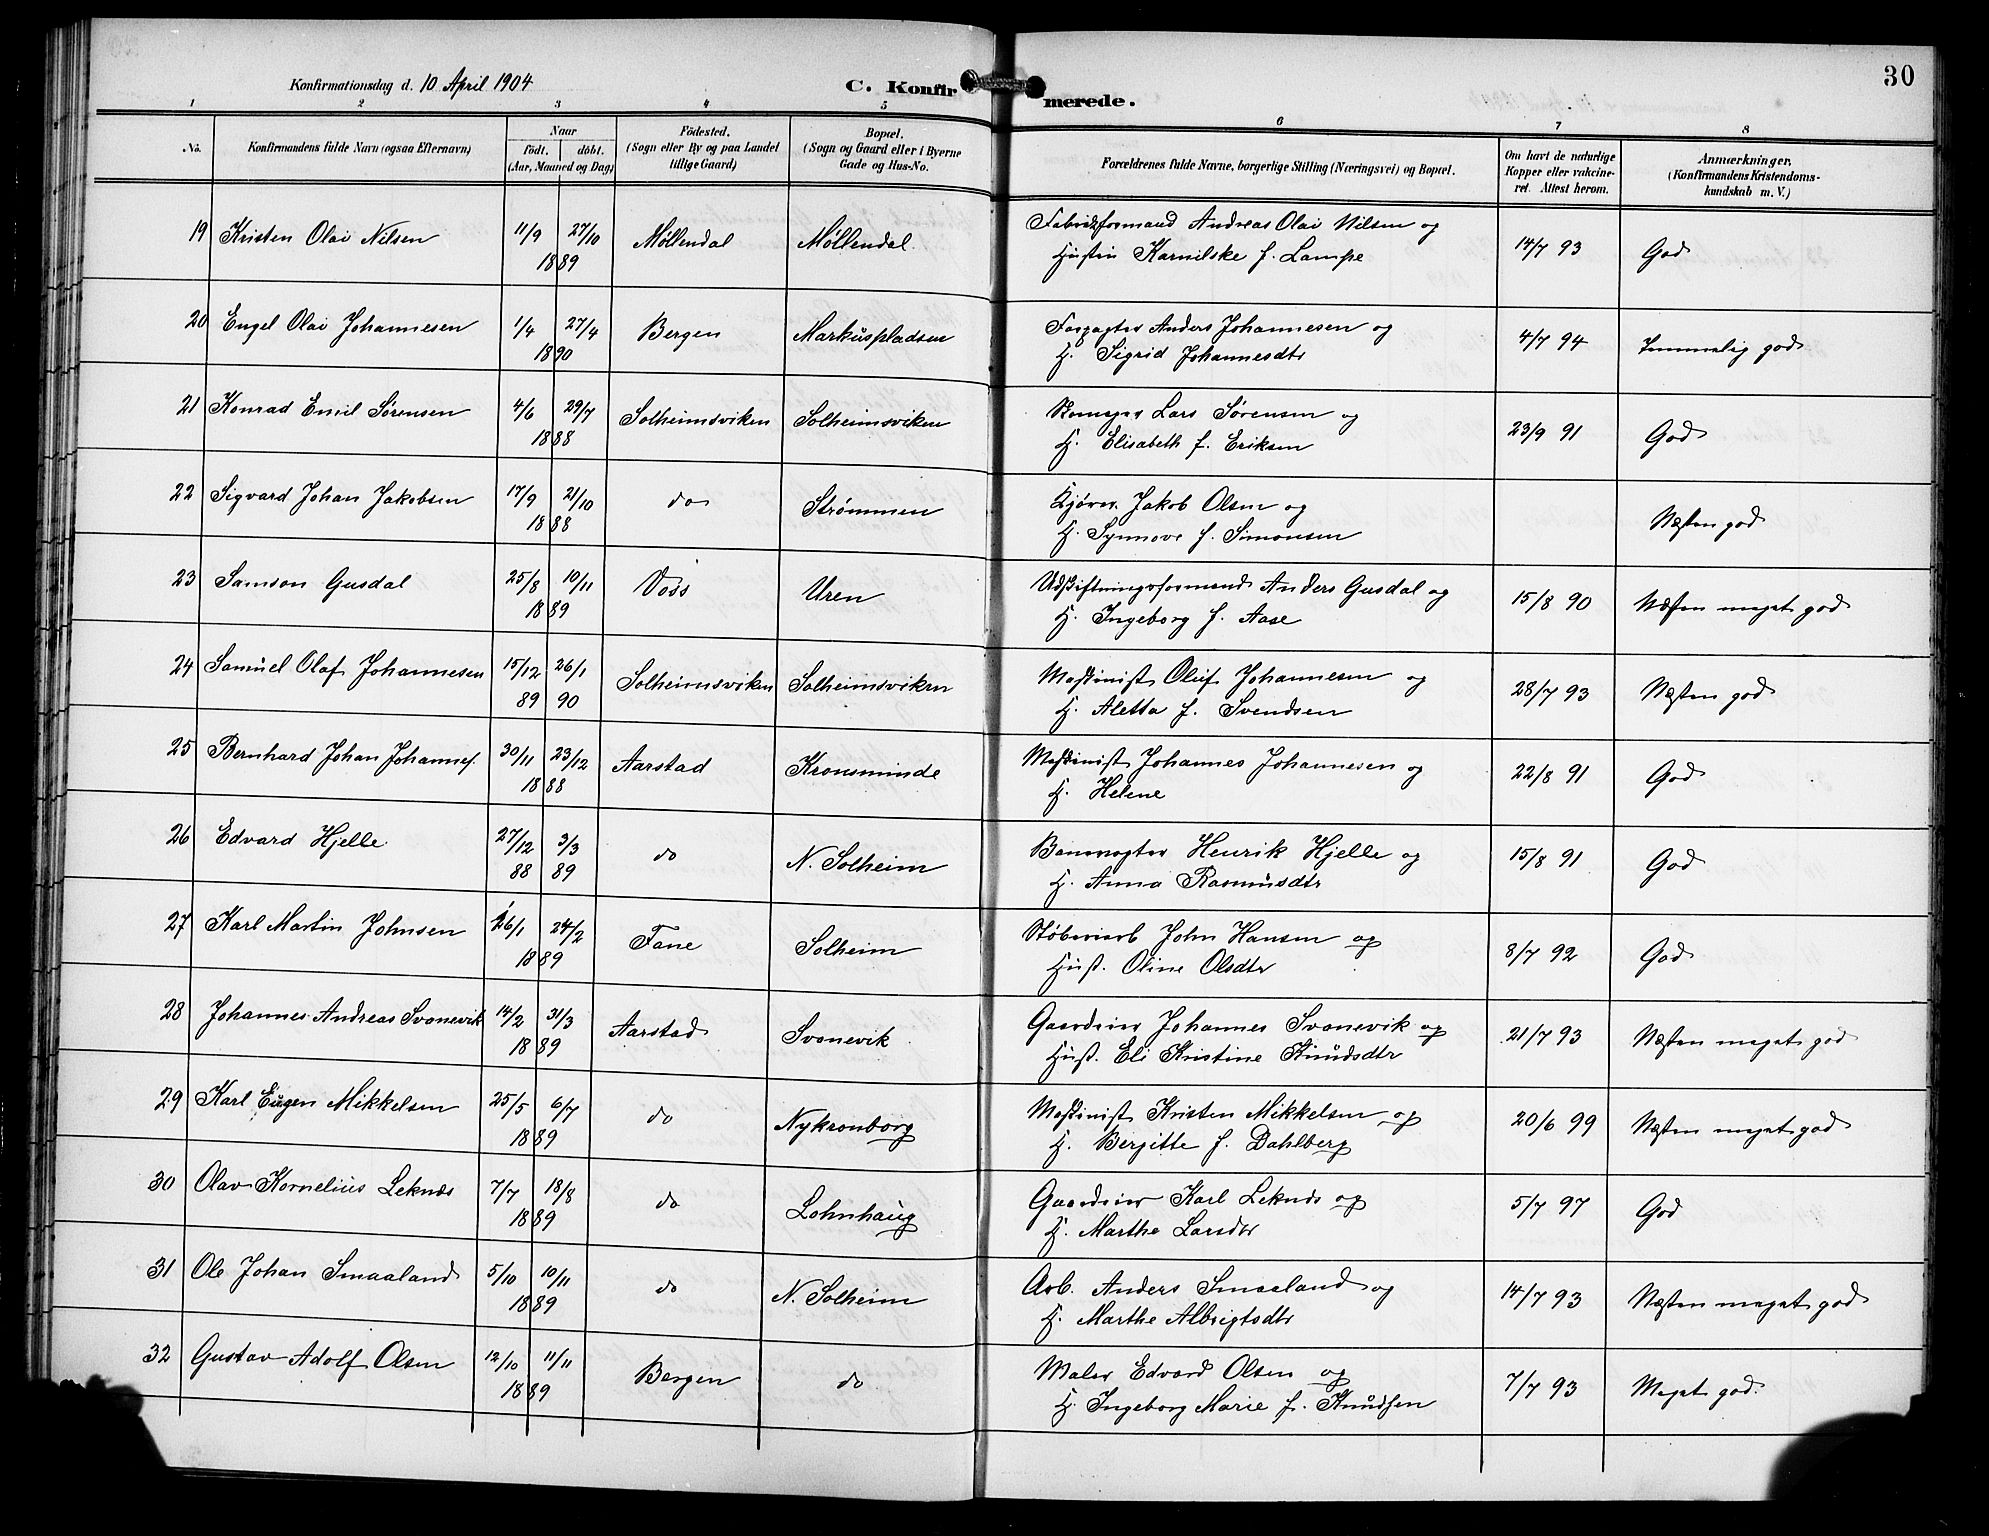 Konfirmationsdag d. 10 April 1904
C. Konfirmerede.
30
1 2 3 4 5 6 7 8
No.
Konfirmandens fulde Navn (ogsaa Efternavn)
Naar
Födt. döbt.
(Aar, Maaned og Dag)
Födested.
(Sogn eller By og paa Landet
tillige Gaard)
Bopæl.
(Sogn og Gaard eller i Byerne
Gade og Hus-No.
Forældrenes fulde Navne, borgerlige Stilling (Næringsvei) og Bopæl.
Om havt de naturlige
Kopper eller vakcine-
ret. Attest herom.
Anmærkninger.
(Konfirmandens Kristendoms-
kundskab m. V.)
19 Kristen Olai Nilsen 11/9 27/10 1889 Møllendal Møllendal Fabrikformand Andreas Olai Nilsen og
Hustru Karnilske f. Lampe 14/7 93 God
20 Engel Olai Johannesen 1/4 27/4 1890 Bergen Markuspladsen Anders Johannesen og
H. Sigrid Johannesdtr 4/7 94 Temmelig god
21 Konrad Emil Sørensen 4/6 29/7 1888 Solheimsviken Solheimsviken Lars Sørensen og
H. Elisabeth f. Eriksen 23/9 91 God
22 Sigvard Johan Jakobsen 17/9 21/10 1888 do Strømmen Kjører Jakob Olsen og
H. Synnove f. Simonsen Næsten god
23 Samson Gusdal 25/8 10/11 1889 Voss Uren Udskiftningsformand Anders Gusdal og
H. Ingeborg f. Aase 15/8 90 Næsten meget god
24 Samuel Olaf Johannesen 15/12 89 26/1 90 Solheimsviken Solheimsviken Maskinist Oluf Johannesen og
H. Aletta f. Svendsen 28/7 93 Næsten god
25 Bernhard Johan Johannes. 30/11 23/12 1888 Aarstad Kronsminde Maskinist Johannes Johannesen og
H. Helene 22/8 91 God
26 Edvard Hjelle 27/12 88 3/3 89 do N. Solheim Banevogter Henrik Hjelle og
H. Anna Rasmusdtr 15/8 91 God
27 Karl Martin Johnsen 26/1 24/2 1889 Fane Solheim Støberiarb John Hansen og
Hust. Oline Olsdtr 8/7 92 God
28 Johannes Andreas Svonevik 14/2 31/3 1889 Aarstad Svonevik Gaardeier Johannes Svonevik og
Hust. Eli Kristine Knudsdtr 21/7 93 Næsten meget god
29 Karl Eugen Mikkelsen 25/5 6/7 1889 do Nykronborg Maskinist Kristen Mikkelsen og
H. Bergitte f. Dahlberg 20/6 99 Næsten meget god
30 Olav Kornelius Leknes 7/7 18/8 1889 do Lohnhaug Gaardeier Karl Leknes og
H. Marthe Larsdtr 5/7 97 God
31 Ole Johan Smaaland 5/10 10/11 1889 do N. Solheim Arb. Anders Smaaland og
H. Marthe Albrigtsdtr 14/7 93 Næsten meget god
32 Gustav Adolf Olsen 12/10 11/11 1889 Bergen do Maler Edvard Olsen og
H. Ingeborg Marie f. Knudsen 7/7 93 Meget god.